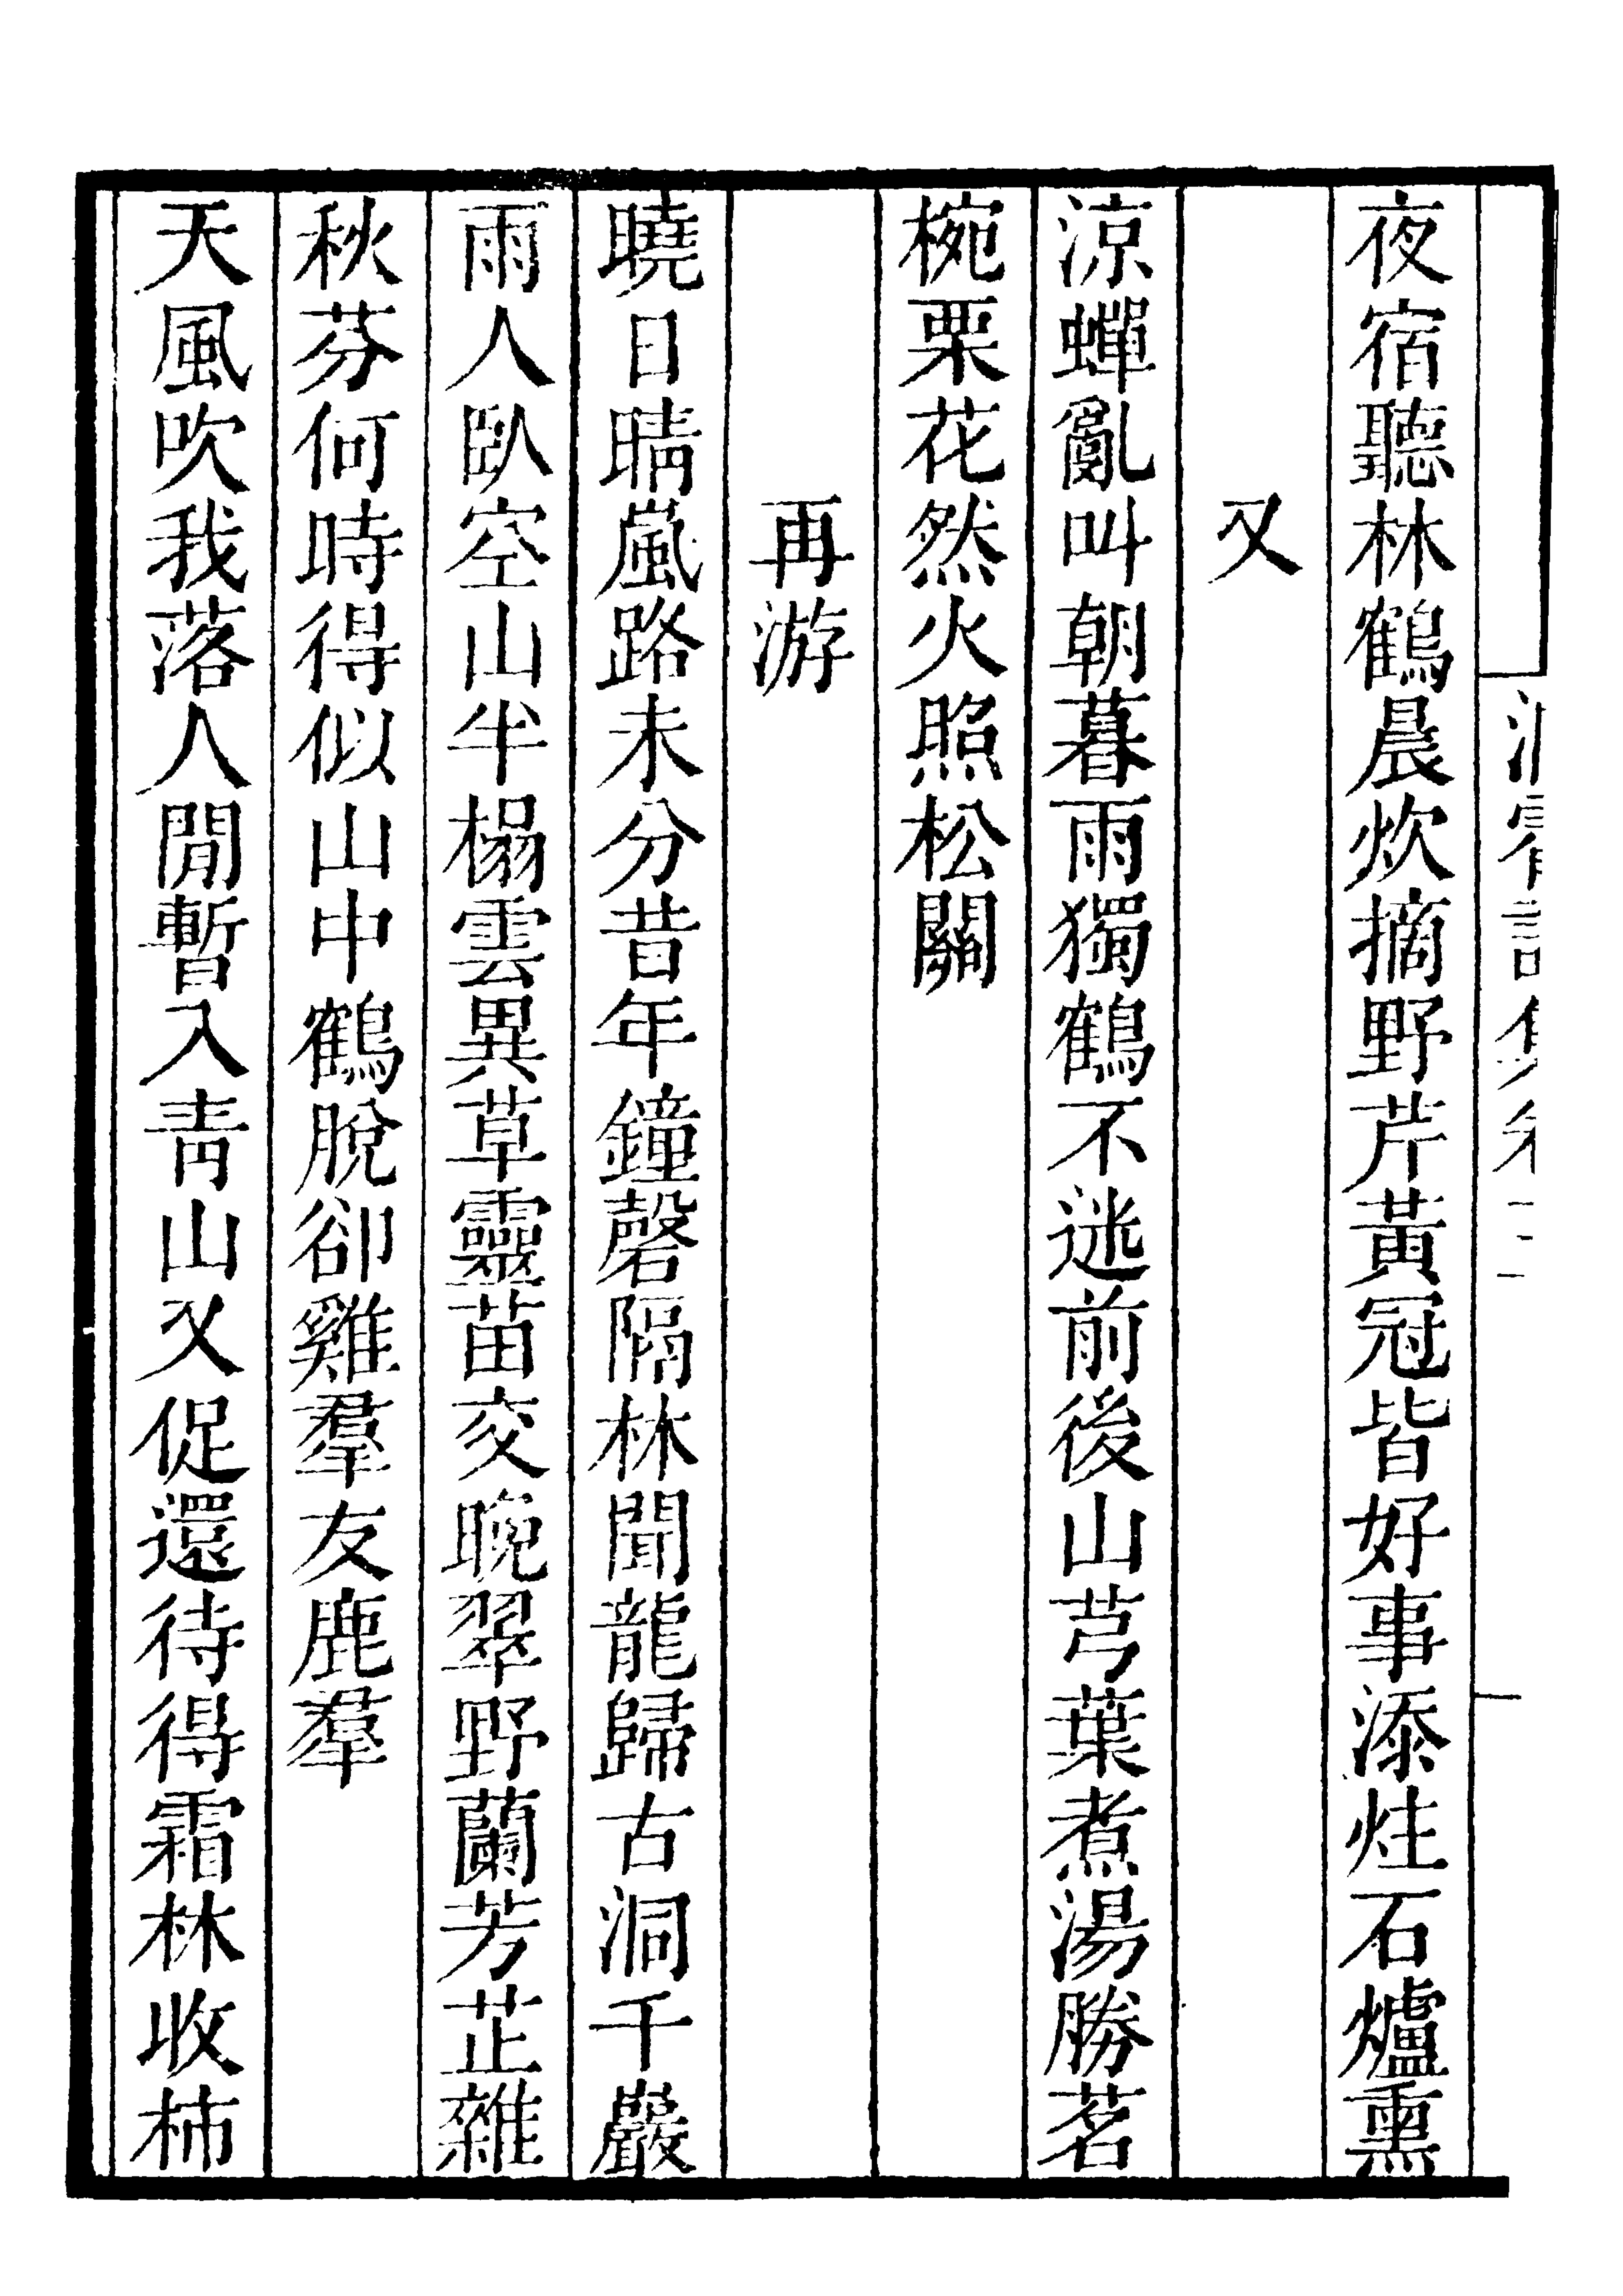 夜宿聽林鶴晨炊摘野芹黃冠皆好事添炷石爐熏
又
涼蟬亂叫朝暮雨獨鶴不迷前後山芎葉煮湯勝茗
椀栗花然火照松關
再游
曉日晴嵐路未分昔年鐘磬隔林聞龍歸古洞千巖
雨人臥空山半榻雲異草靈苗交晚翠野蘭芳芷雜
秋芬何時得似山中鶴脫卻雞羣友鹿羣
天風吹我落人閒暫入青山又促還待得霜林收柿